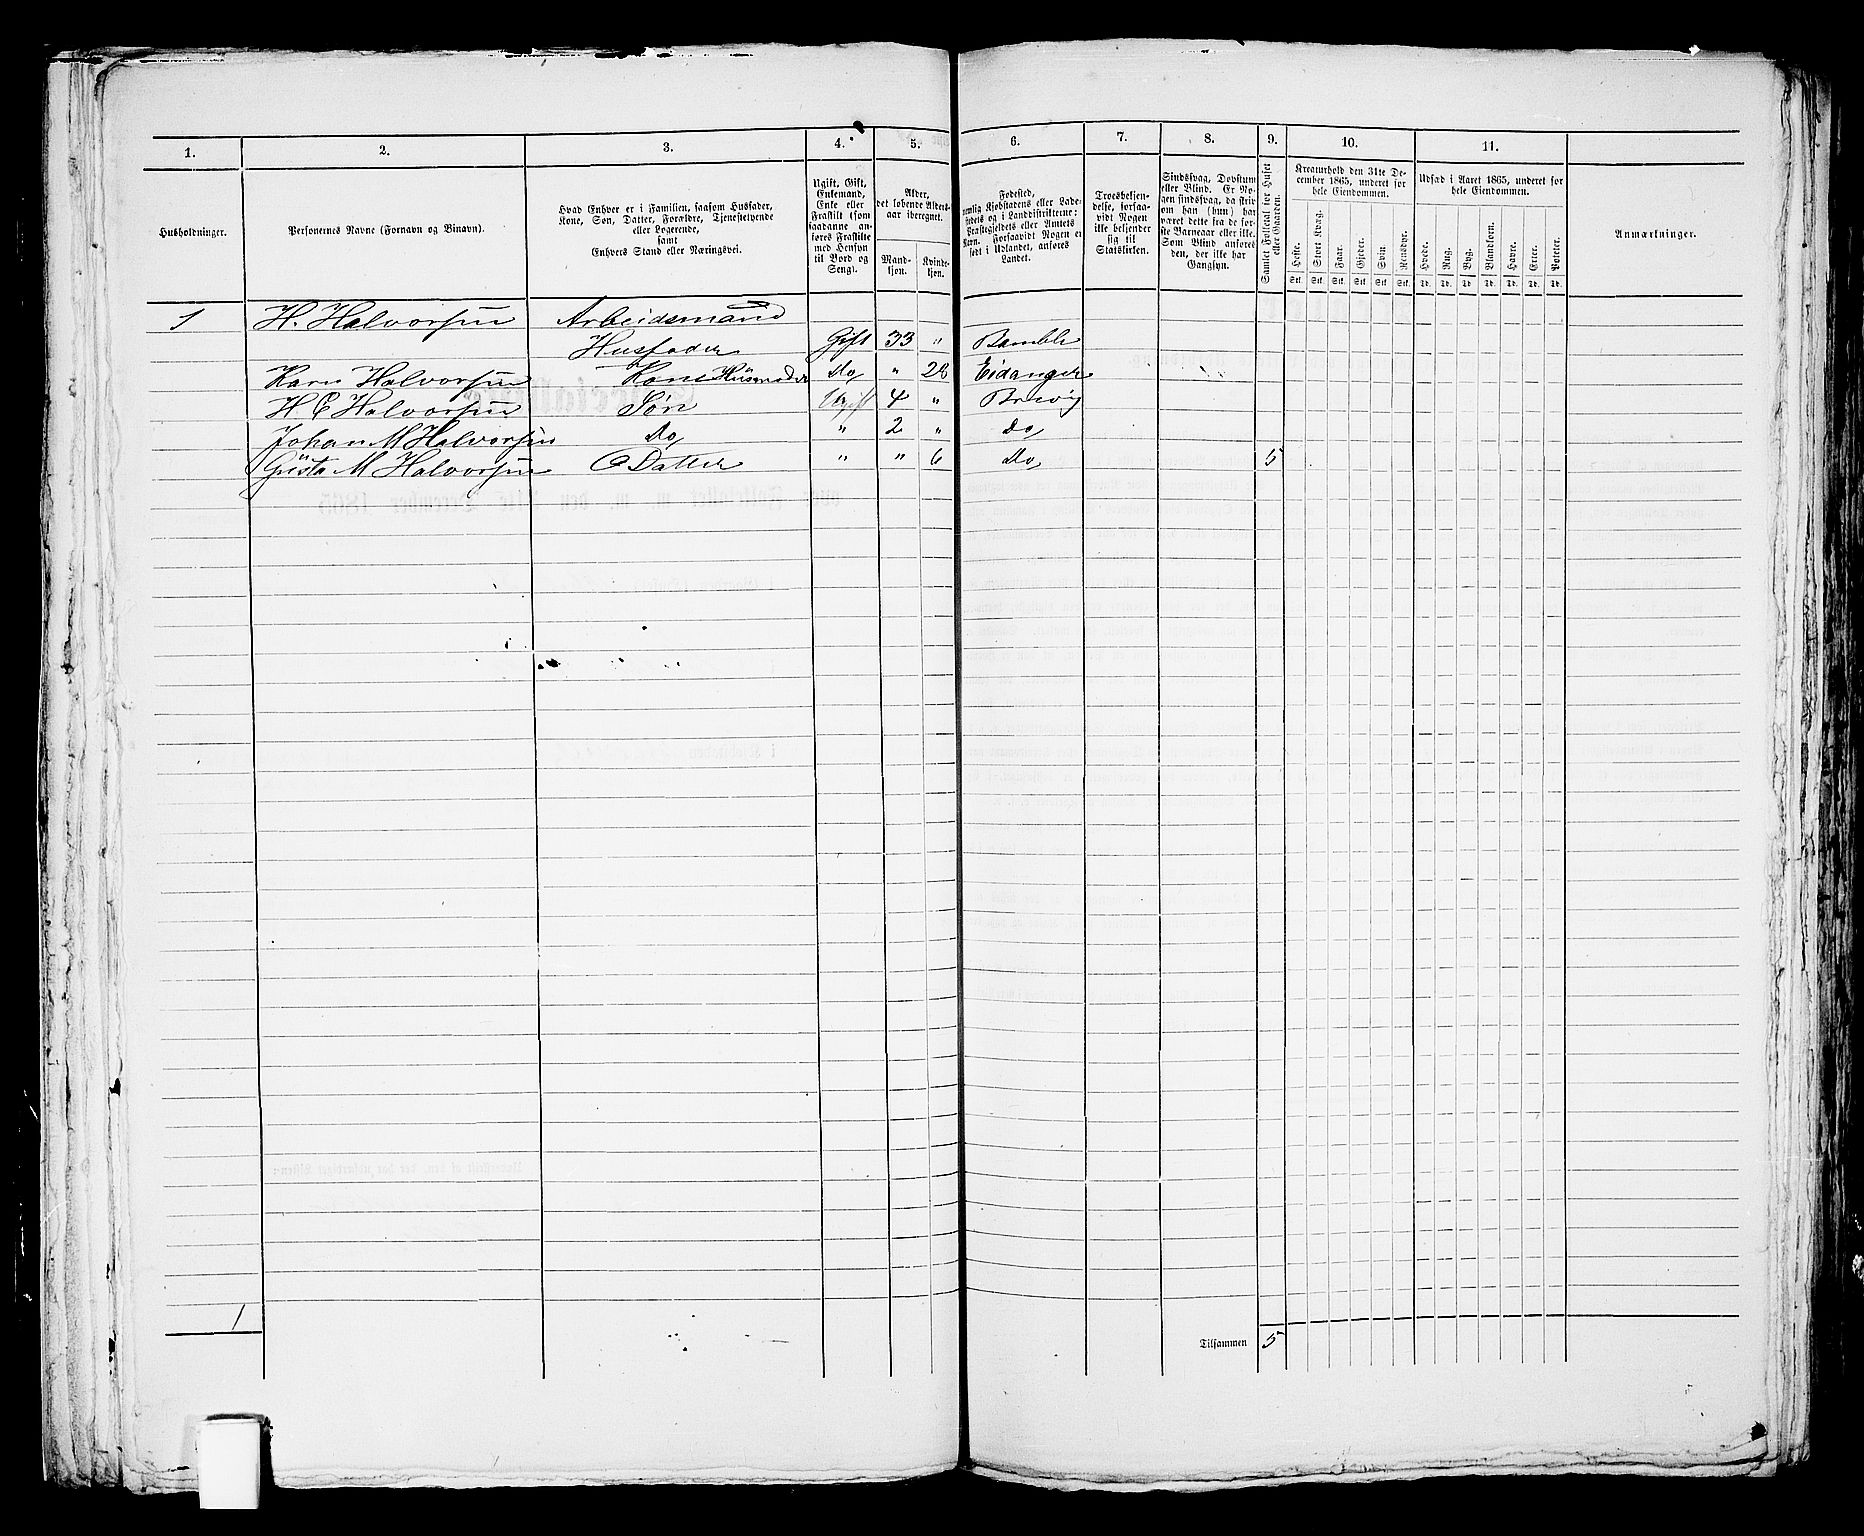 1. 2. 3. 4. 5. 6. 7. 8. 9. 10. 11.
Husholdninger.
Personernes Navne (Fornavn og Binavn).
Hvad Enhver er i Familien, saasom Husfader,
Kone, Søn, Datter, Forældre, Tjenestetyende
eller Logerende,
samt
Enhvers Stand eller Næringsvei.
Ugift, Gift,
Enkemand,
Enke eller
Fraskilt (som
saadanne an-
føres Fraskilte
med Hensyn
til Bord og
Seng).
Alder,
det løbende Alders-
aar iberegnet.
Mand-
kjøn.
Kvinde-
kjøn.
Fødested,
nemlig Kjøbstadens eller Lade-
stedets og i Landdistrikterne:
Præstegjeldets eller Amtets
Navn. Forsaavidt Nogen er
født i Udlandet, anføres
Landet.
Troesbekjen-
delse, forsaa-
vidt Nogen
ikke bekjender
sig til
Statskirken.
Sindssvag, Døvstum
eller Blind. Er No-
gen sindssvag, da skri-
ves om han (hun) har
været dette fra de før-
ste Barneaar eller ikke.
Som Blind anføres
den, der ikke har
Gangsyn.
Samlet Folketal for Huset
eller Gaarden.
Kreaturhold den 31te De-
cember 1865, underet for
hele Eiendommen.
Heste. Stort Kvæg. Faar. Gjeder. Svin. Rensdyr.
Stk. Stk. Stk. Stk. Stk. Stk.
Udsæd i Aaret 1865, underet for
hele Eiendommen.
Hvede. Rug. Byg. Blandkorn. Havre. Erter. Poteter.
Td. Td. Td. Td. Td. Td. Td.
Anmærkninger.
1 H. Halvorsen Arbeidsmand
Husfader Gift 33 " Bamble
Karn Halvorsen Kone Husmoder Do " 28 Eidanger
H. E Halvorsen Søn Ugift 4 " Brevig
Johan M Halvorsen Do " 2 " Do
Gusta M Halvorsen Datter " " 6 Do 5
1
Tilsammen 5